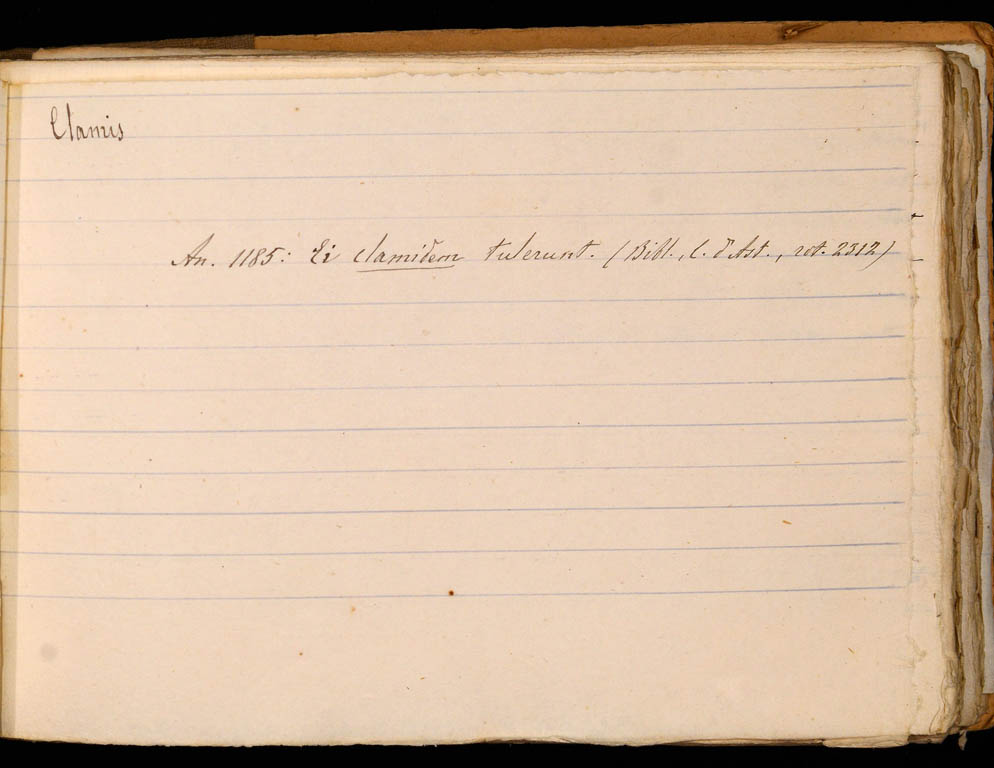 Clamis
An. 1185: Ei clamidem tulerunt. (Bibl., C. d'Ast., rot. 2312)